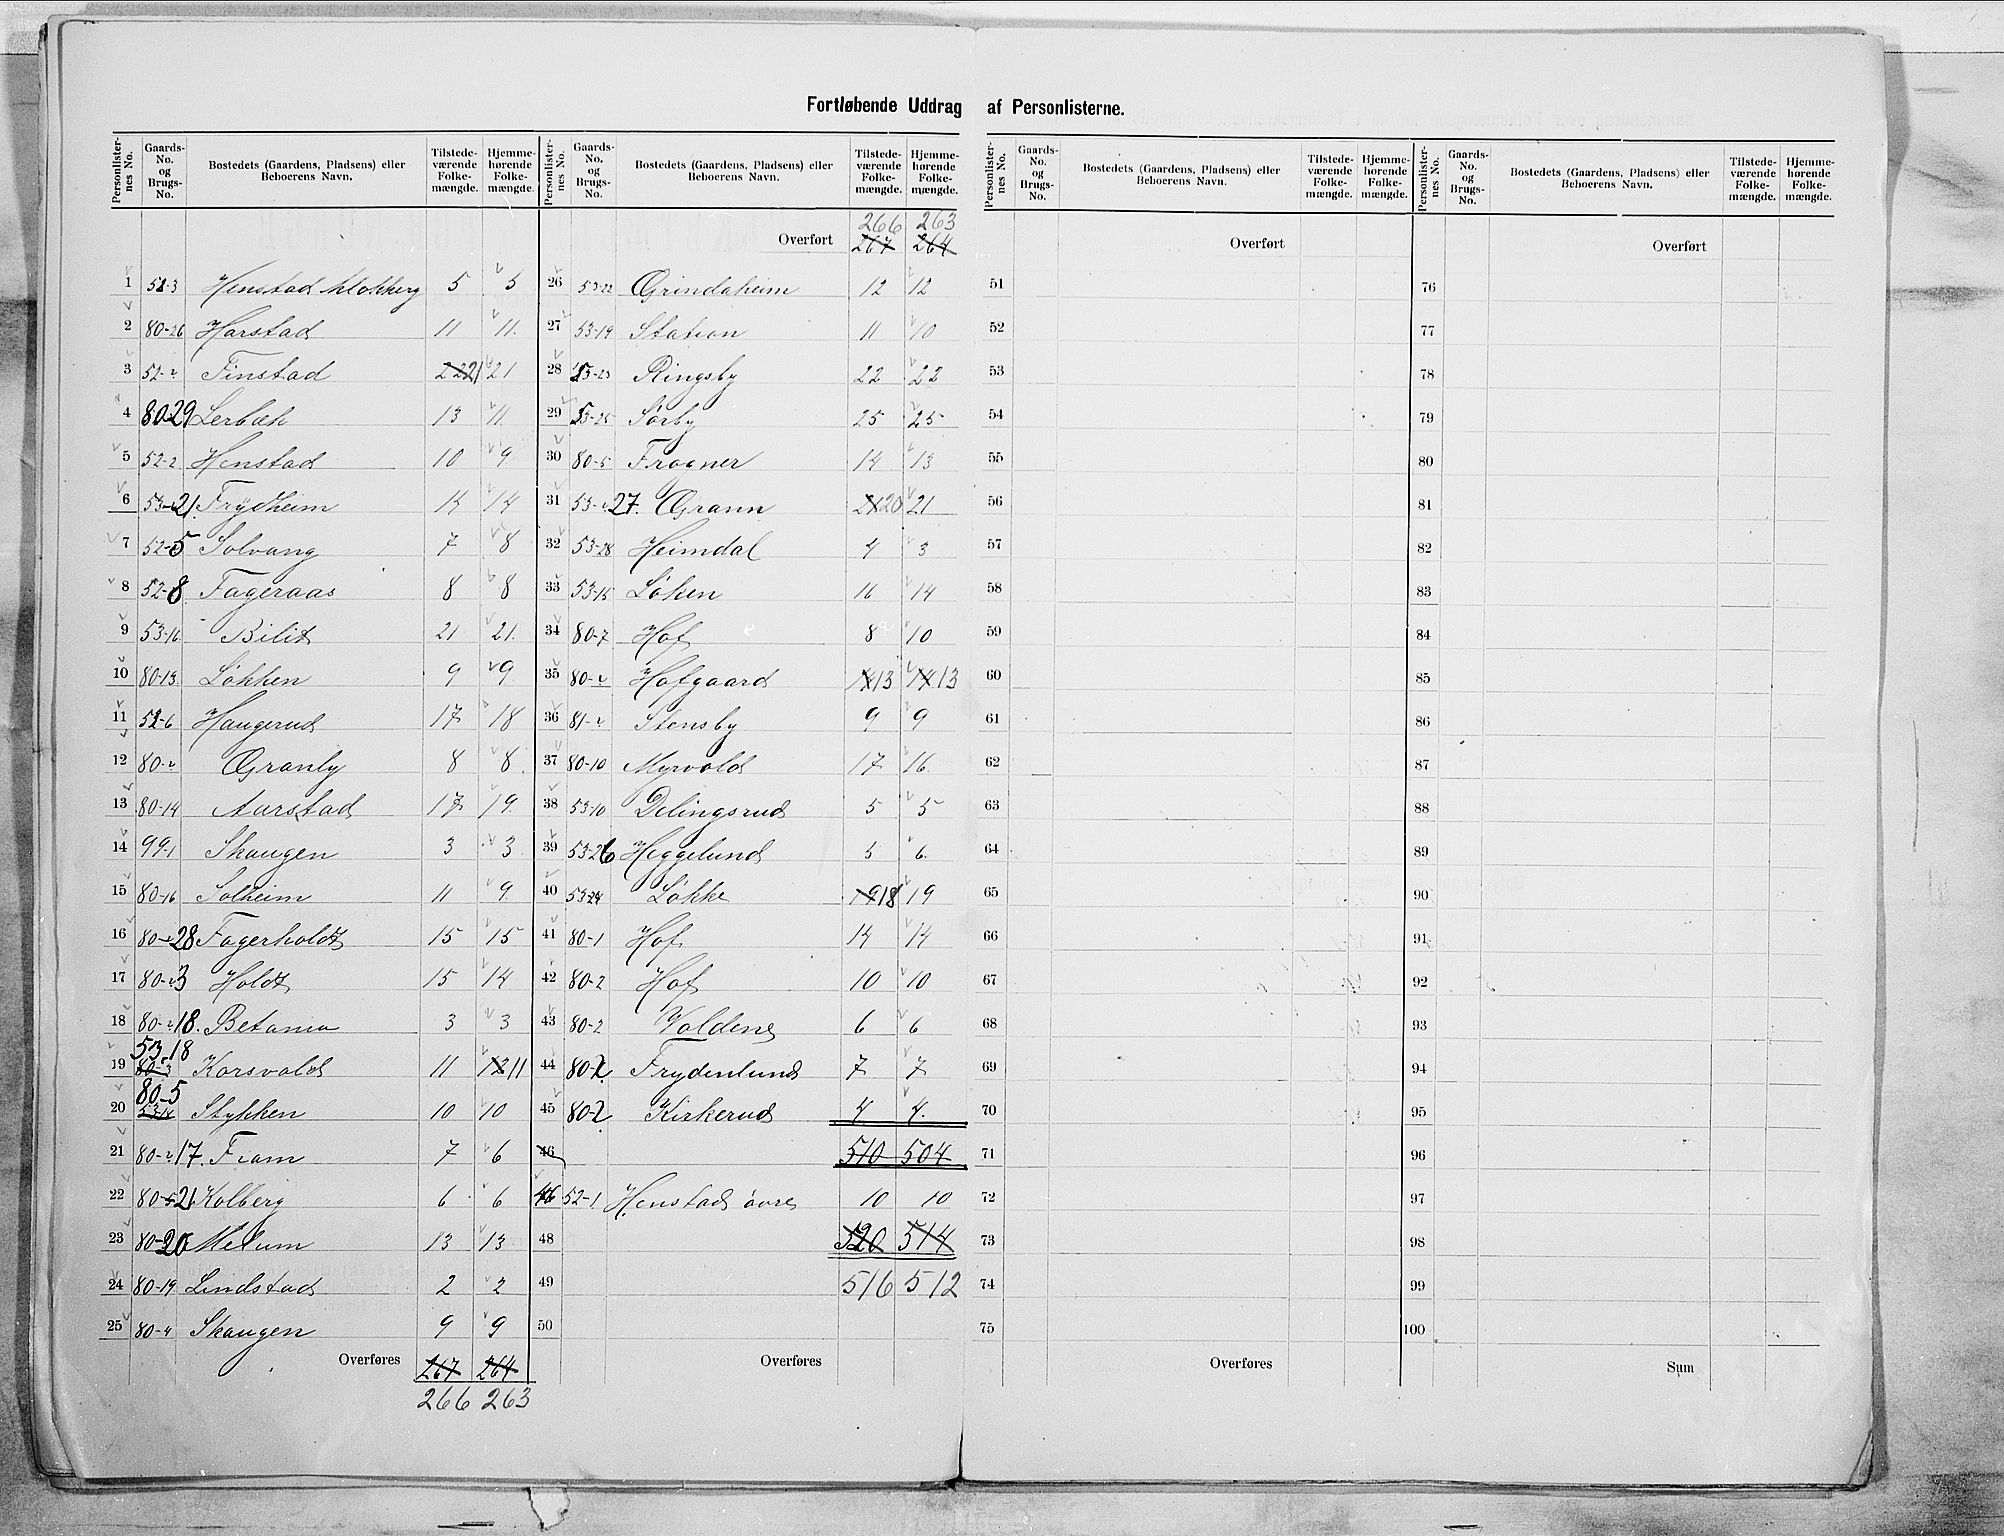 Fortløbende Uddrag af Personlisterne.
Personlister-nes No. Gaards-No. og Brugs-No. Bostedets (Gaardens, Pladsens) eller Beboerens Navn. Tilstede-værende Folke-mængde. Hjemme-hørende Folke-mængde. Personlister-nes No. Gaards-No. og Brugs-No. Bostedets (Gaardens, Pladsens) eller Beboerens Navn. Tilstede-værende Folke-mængde. Hjemme-hørende Folke-mængde.
1 52-3 Henstad klokkerg 5 5
2 80-26 Harstad 11 11.
3 52- Finstad 22 21 21
4 80-29 Lerbæk 13 11
5 52-2 Henstad 10 9
6 53-21. Frydheim 14 14
7 52-5 Solvang 7 8
8 52-8 Fageraas 8 8
9 53-16 Bilit 21 21.
10 80-13. Løkken 9 9.
11 52-6 Haugerud 17 18
12 80- Granly 8 8.
13 80-14 Aarstad 17 19.
14 99-1 Skaugen 3 3.
15 80-16 Solheim 11 9.
16 80-28 Fagerholdt 15 15
17 80-3 Holdt 15 14
18 80-18. Betania 3 3
19 53.18 80-3 Korsvold 11 12 11
20 80-5 53-18 Stykken 10 10
21 80-17. Fram 7 6
22 80-21 Kolberg 6 6
23 80-20 Melum 13 13
24 80-19 Lindstad 2 2
25 80-4 Skaugen 9 9
Overføres 267 264
266 263
266 263
Overført 267 264
26 53-22 Grindaheim 12 12
27 53-19 Station 11 10
28 53-23 Ringsby 22 22
29 53-25 Sørby 25 25
30 80-5 Frogner 14 13
31 53-27. Grann 21 20 21
32 53-28 Heimdal 4 3
33 53-15 Løken 16 14
34 80-7 Hof 8 10
35 80- Hofgaard 14 13 14 13
36 81- Stensby 9 9
37 80-10 Myrvold 17 16
38 53-10 Delingsrud 5 5
39 53-26 Heggelund 5 6.
40 53-24 Løkke 19 18 19
41 80-1 Hof 14 14
42 80-2 Hof 10 10
43 80-2 Volden 6 6
44 80-2 Frydenlund 7 7
45 80-2 Kirkerud 4 4.
46 510 504
46 52-1 Henstad øvre 10 10
48 520 514
49 516 512
50
Overføres
Personlister-nes No. Gaards-No. og Brugs-No. Bostedets (Gaardens, Pladsens) eller Beboerens Navn. Tilstede-værende Folke-mængde. Hjemme-hørende Folke-mængde. Personlister-nes No. Gaards-No. og Brugs-No. Bostedets (Gaardens, Pladsens) eller Beboerens Navn. Tilstede-værende Folke-mængde. Hjemme-hørende Folke-mængde.
Overført
51
52
53
54
55
56
57
58
59
60
61
62
63
64
65
66
67
68
69
70
71
72
73
74
75
Overføres
Overført
76
77
78
79
80
81
82
83
84
85
86
87
88
89
90
91
92
93
94
95
96
97
98
99
100
Sum